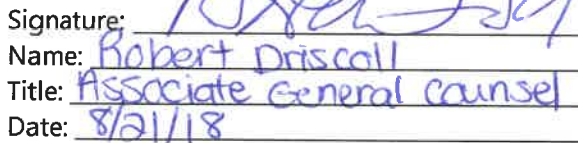 Signature:
Name: Robert Driscoll
Title: Associate General Counsel
Date: 8/21/18